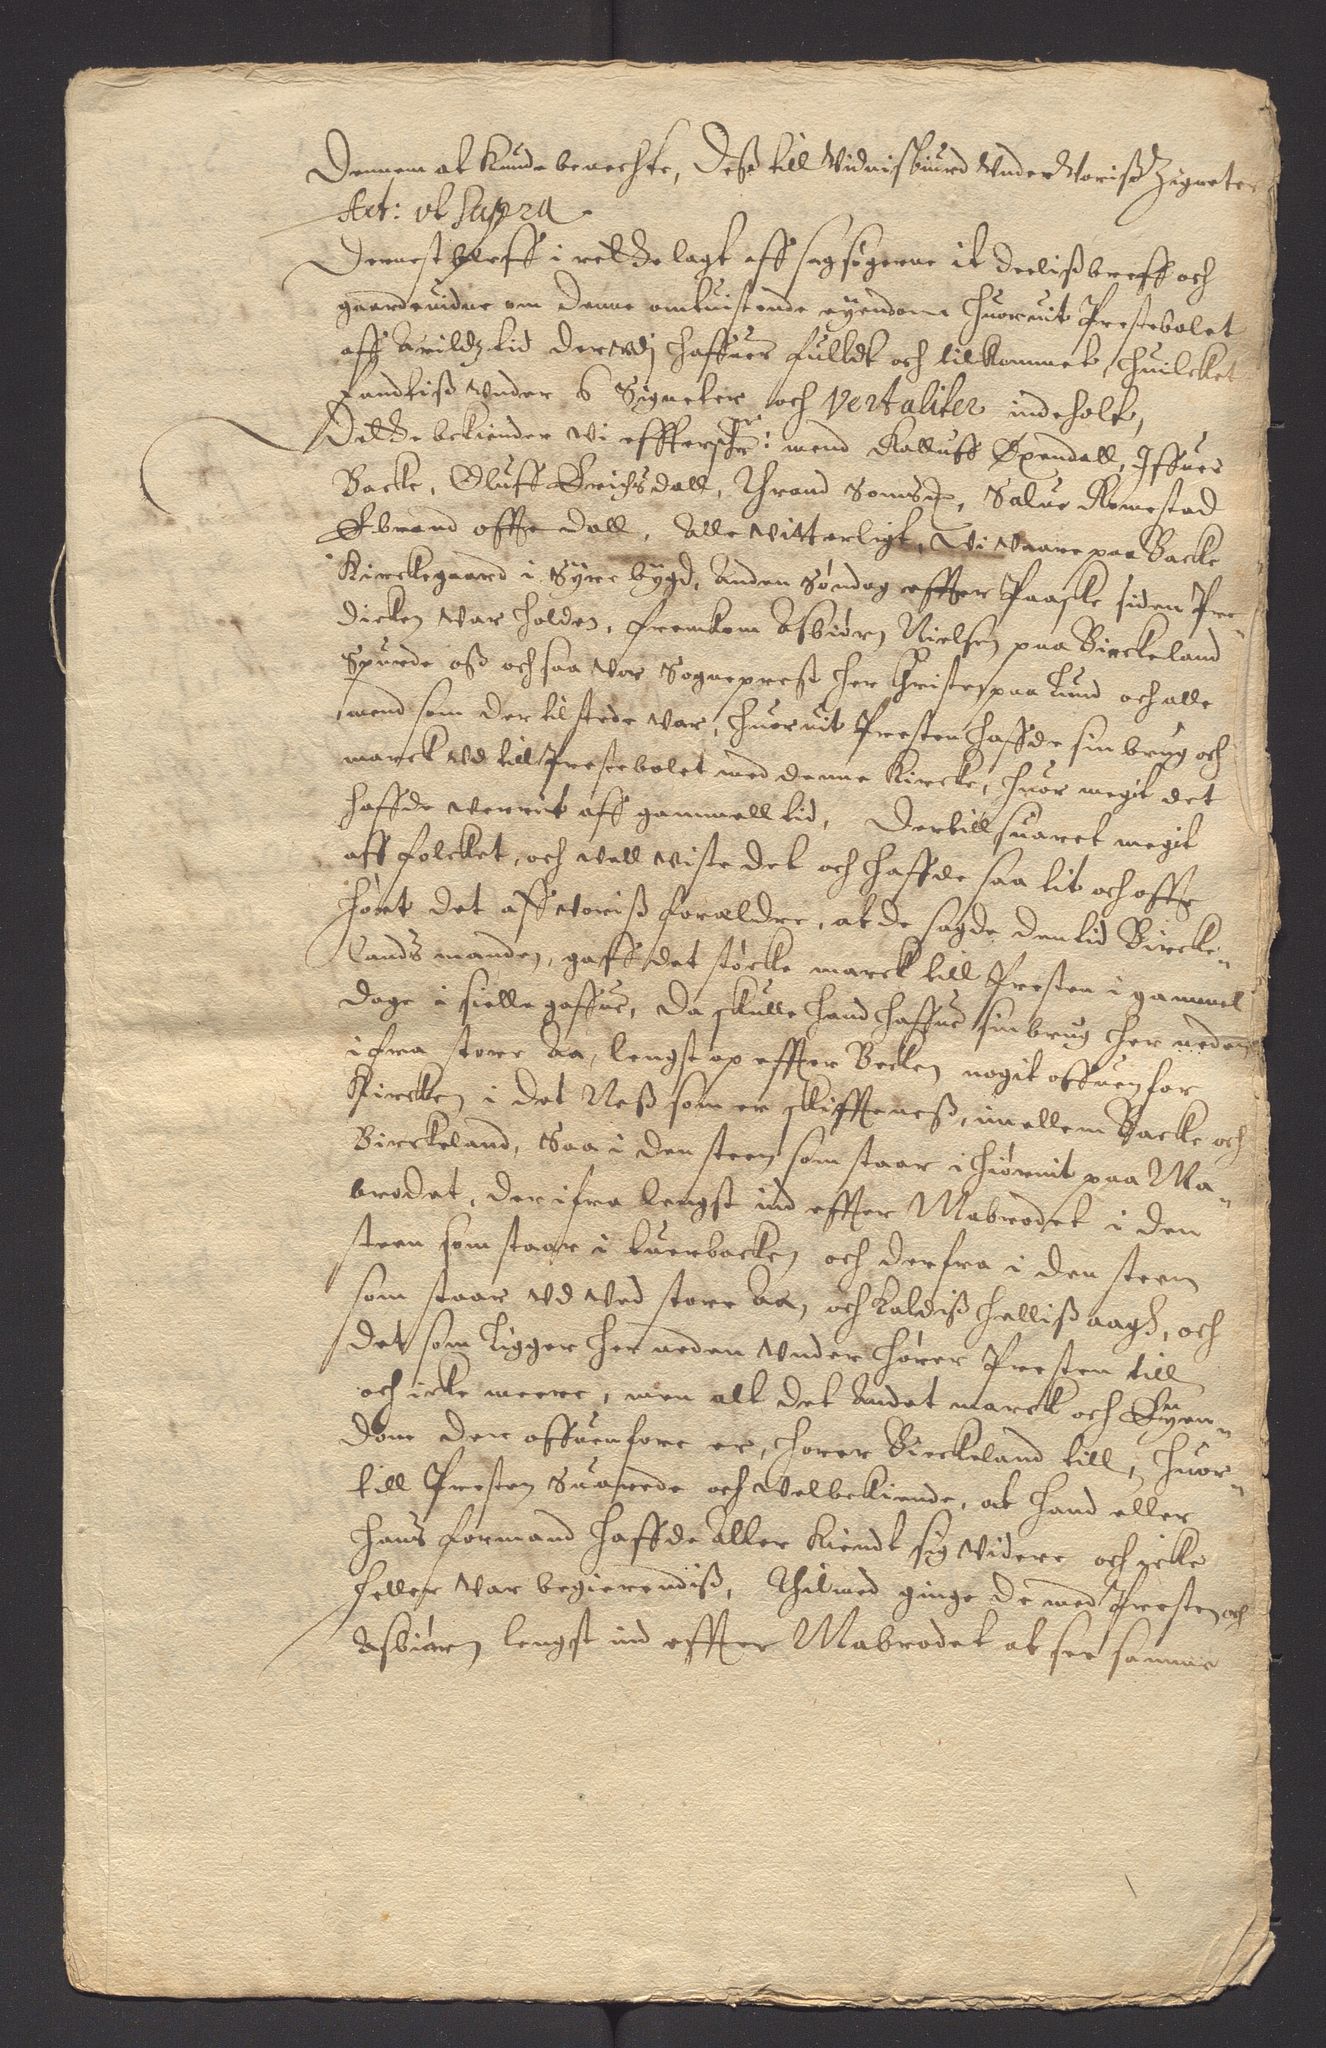 Dennem at kunde berechte, Deß till Widnisbiurd Wnder Worisß Zigneter
Act: vt Supra
Dernest bleff i rette lagt aff sagsøgerne it deelisbreff och
gaardeuidne om denne omtuistende eyendom huoruit Prestebolet
aff Arildz tid der wdj haffuer fulldt och tilkommet, huilcket
fandtiß wnder 6 Signeter och Vertaliter indeholt,
Dette bekiender wi effterschr: mend Rolluff Øxendall, Iffuer
Backe, Oluff Erichsdall, Thrond Somsø, Salue Romestad
Ebrend offtedall, Alle witterligt, Wi waare paa Backe
Kirckegaard i Syrebygd, Anden Søndag effter Paaske siden Pre-
dicken war holden, fremkom Asbiørn Nielsen paa Birckeland
Spurde oß och saa wor Sogneprest her Christen paa Lund och alle
mend som der til stede war, huor uit Presten haffde sin brug och
marck wd till Prestebolet med denne Kircke, huor megit det
haffde werrit aff gammell tid, Dertill suaret megit
aff folcket, och well wiste det och haffde saa tit och offte
hørt det aff woriß forældre, at de sagde den tid Bircke-
lands manden, gaff det støcke marck till Presten i gammel
dage i sielle gaffue, da skulle hand haffue sin brug her neden
ifra store Aa, lengst op effter Becken nogit offuen for
Kircken i det Neß som er skiffteneß, imellem Backe och
Birckeland, Saa i den steen som staar i hiørnit paa Ma-
brodet, der ifra lengst ind effter Mabrodet i den
steen som staar i tuerbacken och derfra i den steen
som staar wd wed store Aa, och kaldiß helliß aagß, och
det som ligger her neden wnder hører Presten till
och icke meere, men alt det Andet marck och Eyen-
dom der offuenfore er, hører Birckeland till, huor-
till Presten Suarede och welbekiende, at hand eller
hans formand haffde Aller kiendt sig widere och icke
heller war begierendiß, Thilmed ginge de med Presten och
Asbiørn lengst ind effter Mabrodet at see samme